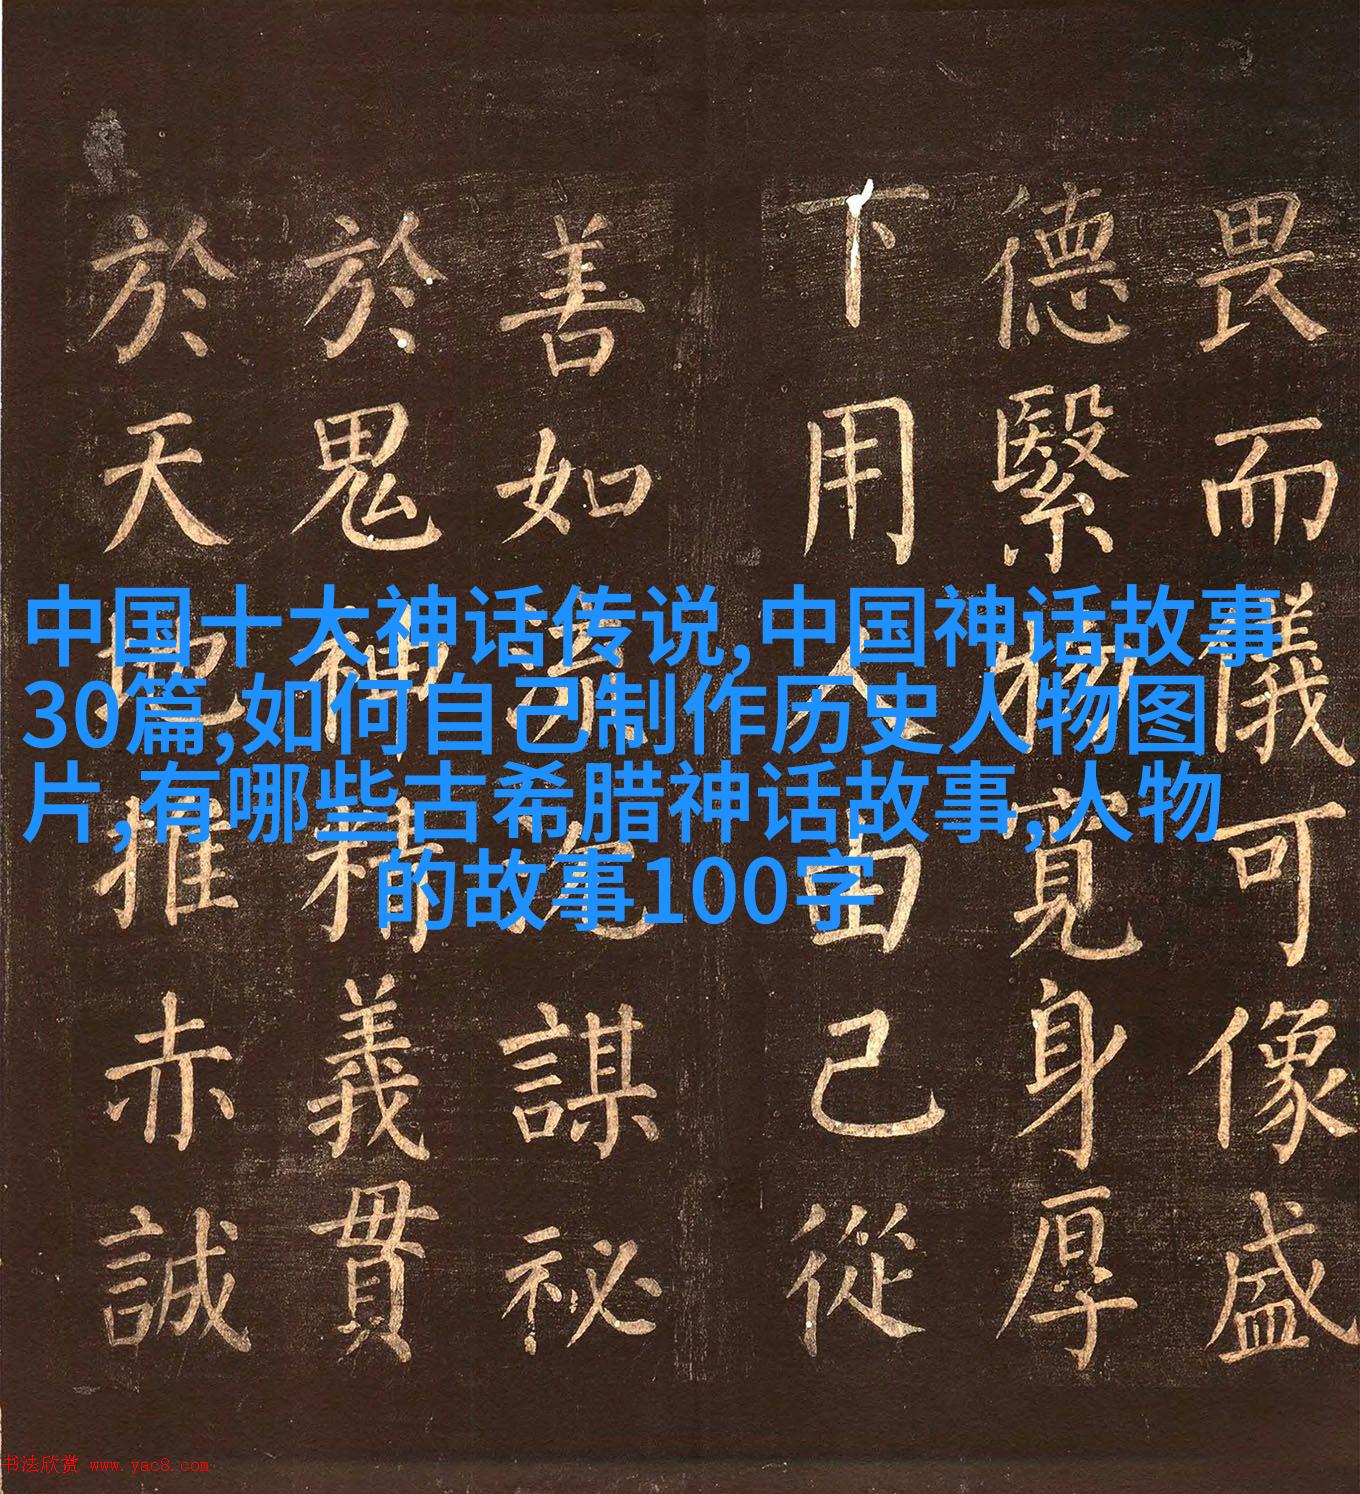 畏而儀可像盛
德繄物寬身厚
下用人由己從
善如流謀祕
於鬼神精義貫
於天地推赤誠
中国十大神话传说,中国神话故事
30篇,如何自己制作历史人物图
片,有哪些古希腊神话故事,人物
的故事100字
书法欣赏 www.yac8.com